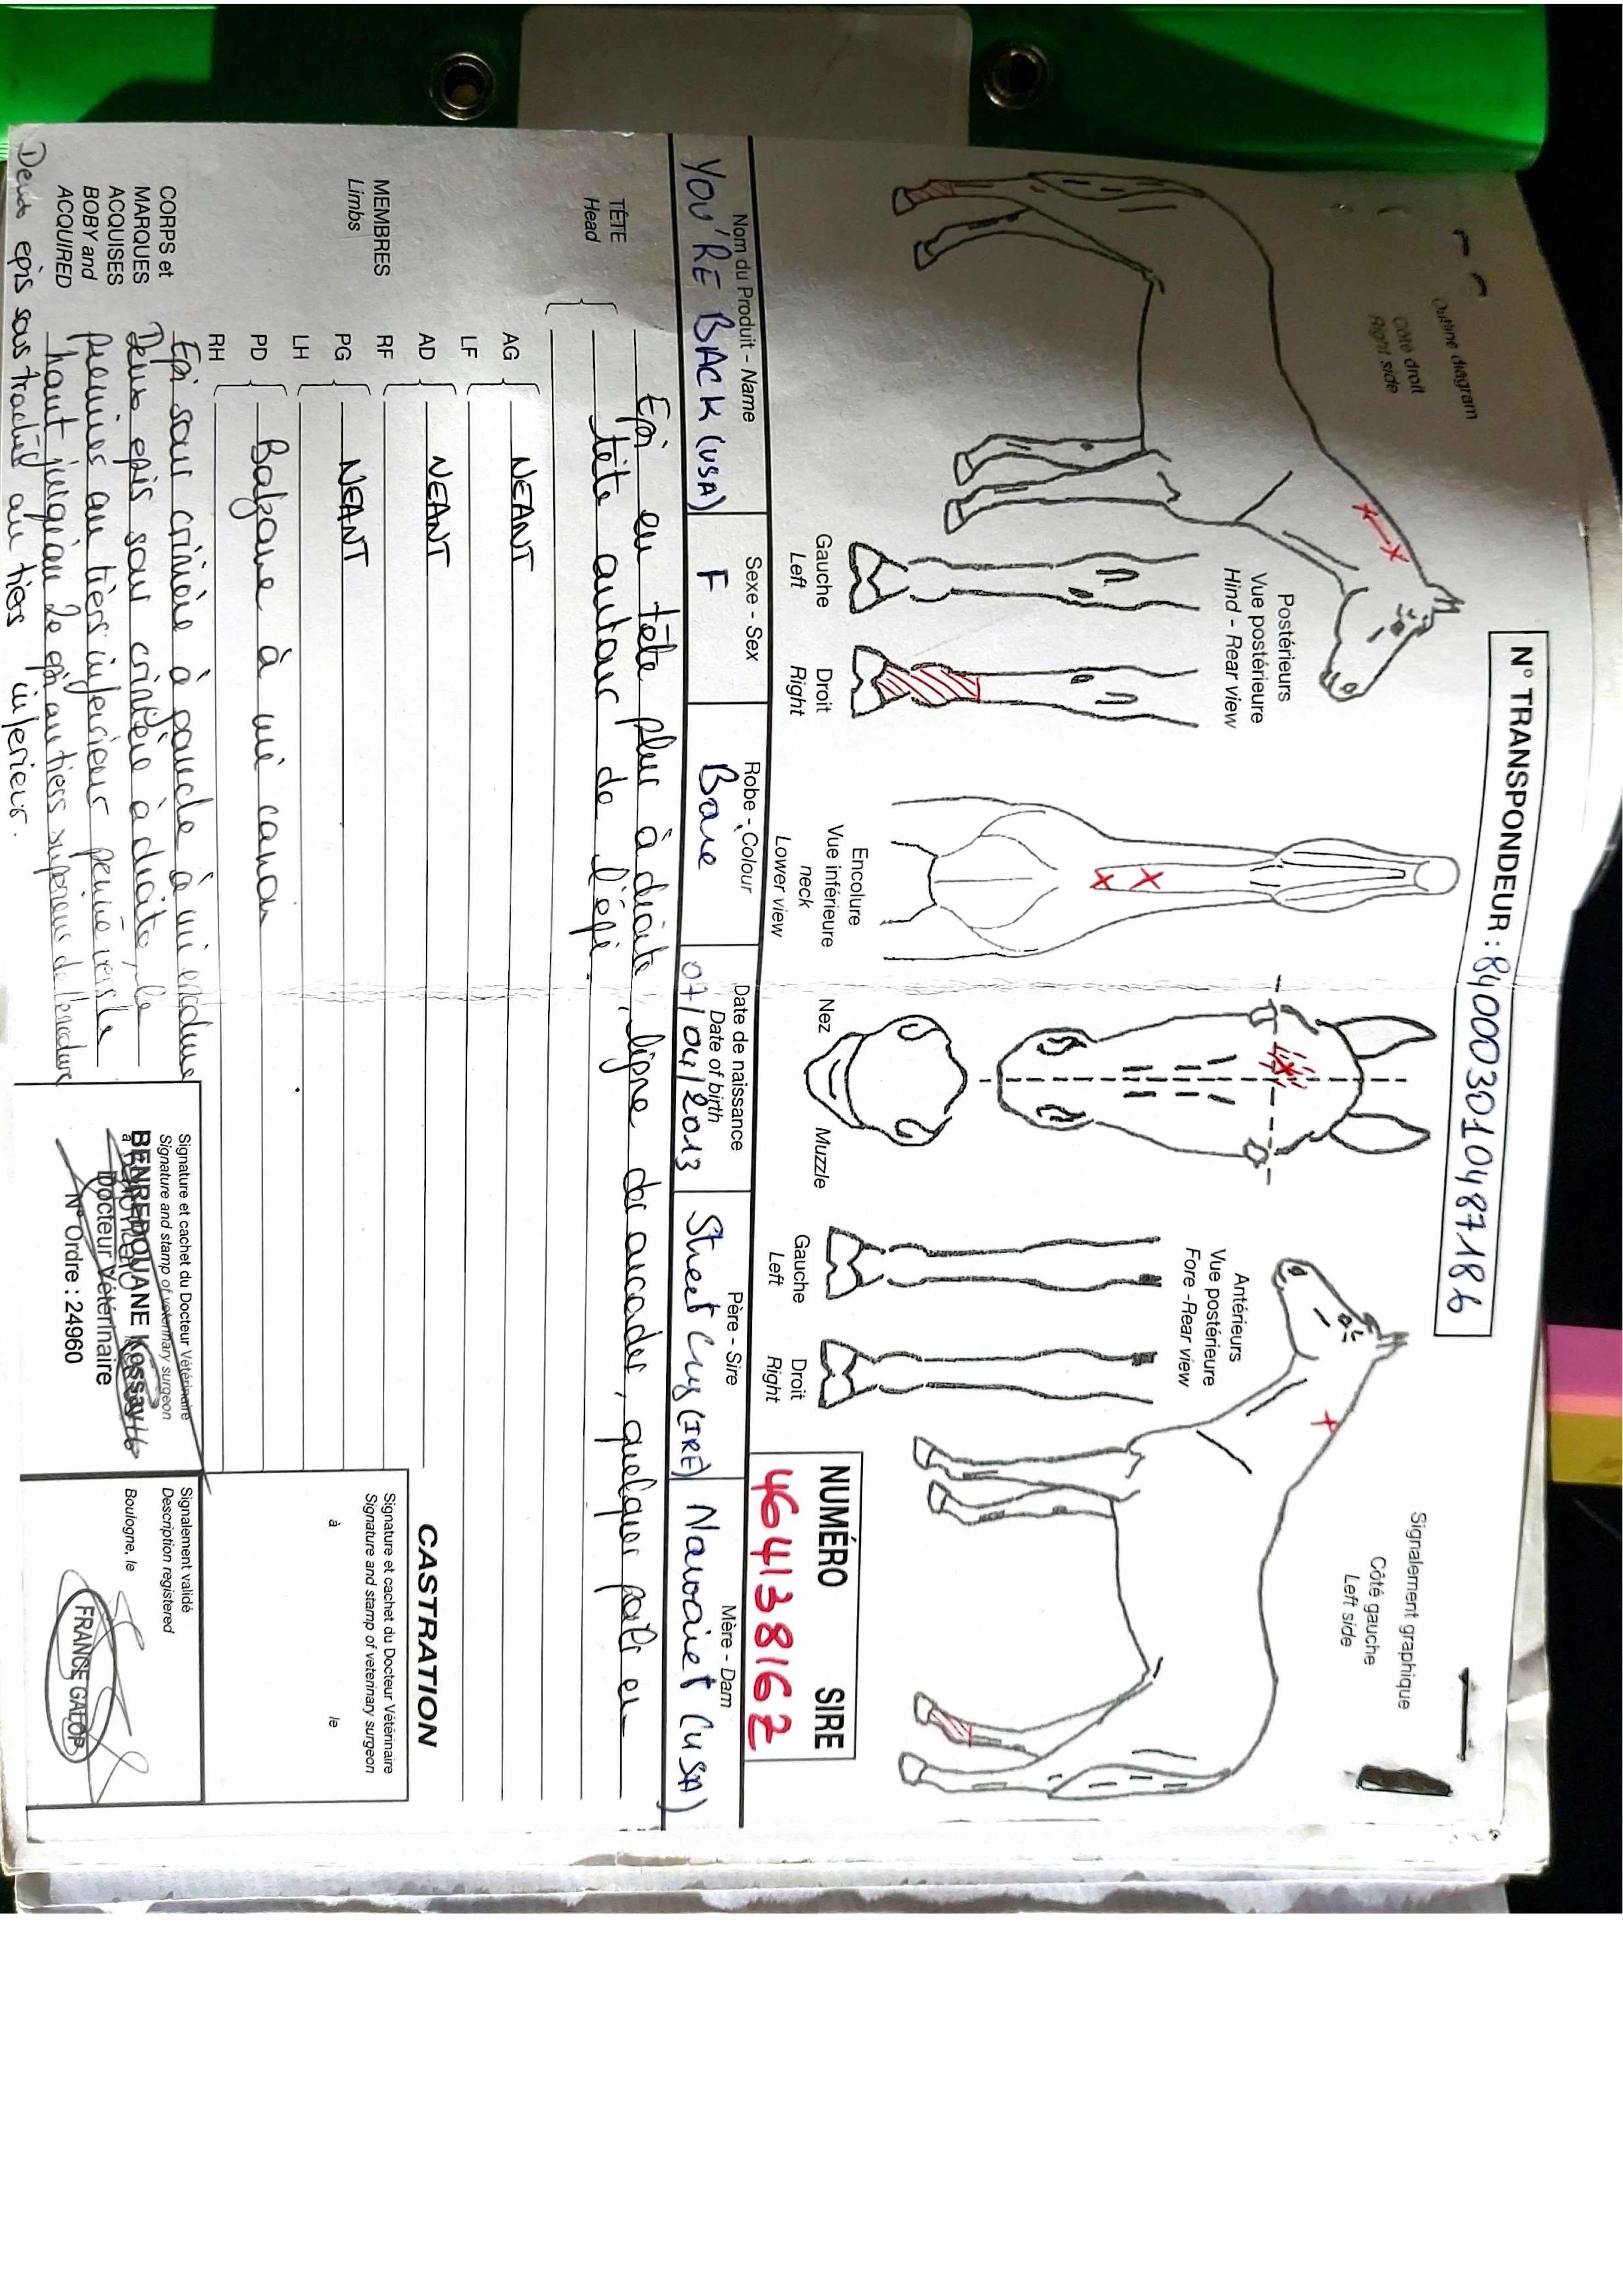 N° TRANSPONDEUR : 840003010487186
Outline diagram
Côté droit
Right side
Signalement graphique
Côté gauche
Left side
Postérieurs
Vue postérieure
Hind - Rear view
Gauche
Left
Droit
Right
Encolure
Vue inférieure
neck
Lower view
Nez
Muzzle
Antérieurs
Vue postérieure
Fore -Rear view
Gauche
Left
Droit
Right
NUMÉRO SIRE
46413816Z
Nom du Produit - Name
YOU'RE BACK (USA)
Sexe - Sex
F
Robe - Colour
Baie
Date de naissance
Date of birth
07/04/2013
Père - Sire
Street Cry (IRE)
Mère - Dam
Navoaiet (USA)
TÊTE
Head
Epi en tête plus à droite, ligne des arcades, quelques poils en
tête autour de l'épi.
MEMBRES
Limbs
AG
LF
NEANT
AD
RF
NEANT
PG
LH
NEANT
PD
RH
Balzane à mi canon
CORPS et
MARQUES
ACQUISES
BOBY and
ACQUIRED
Epi sous crinière à gauche à mi encolure
Deux epis sous crinière à droite, le
premier au tiers inferieur penné vers le
haut jusqu'au 2e epi au tiers superieur de l'encolure
Deux epis sous trachée au tiers inferieur.
CASTRATION
Signature et cachet du Docteur Vétérinaire
Signature and stamp of veterinary surgeon
à le
Signature et cachet du Docteur Vétérinaire
Signature and stamp of veterinary surgeon
BENREDOUANE Kossay
Docteur Vétérinaire
N° Ordre : 24960
Signalement validé
Description registered
Boulogne, le
FRANCE GALOP